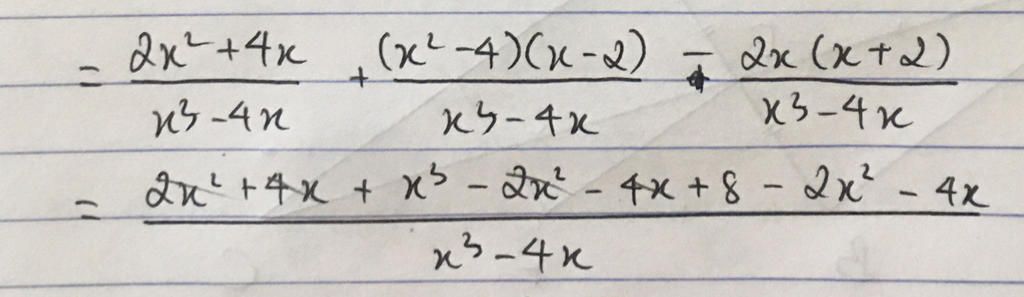 = (2x² + 4x)/(x³ - 4x) + ((x² - 4)(x - 2))/(x³ - 4x) - (2x(x + 2))/(x³ - 4x)
= (2x² + 4x + x³ - 2x² - 4x + 8 - 2x² - 4x)/(x³ - 4x)